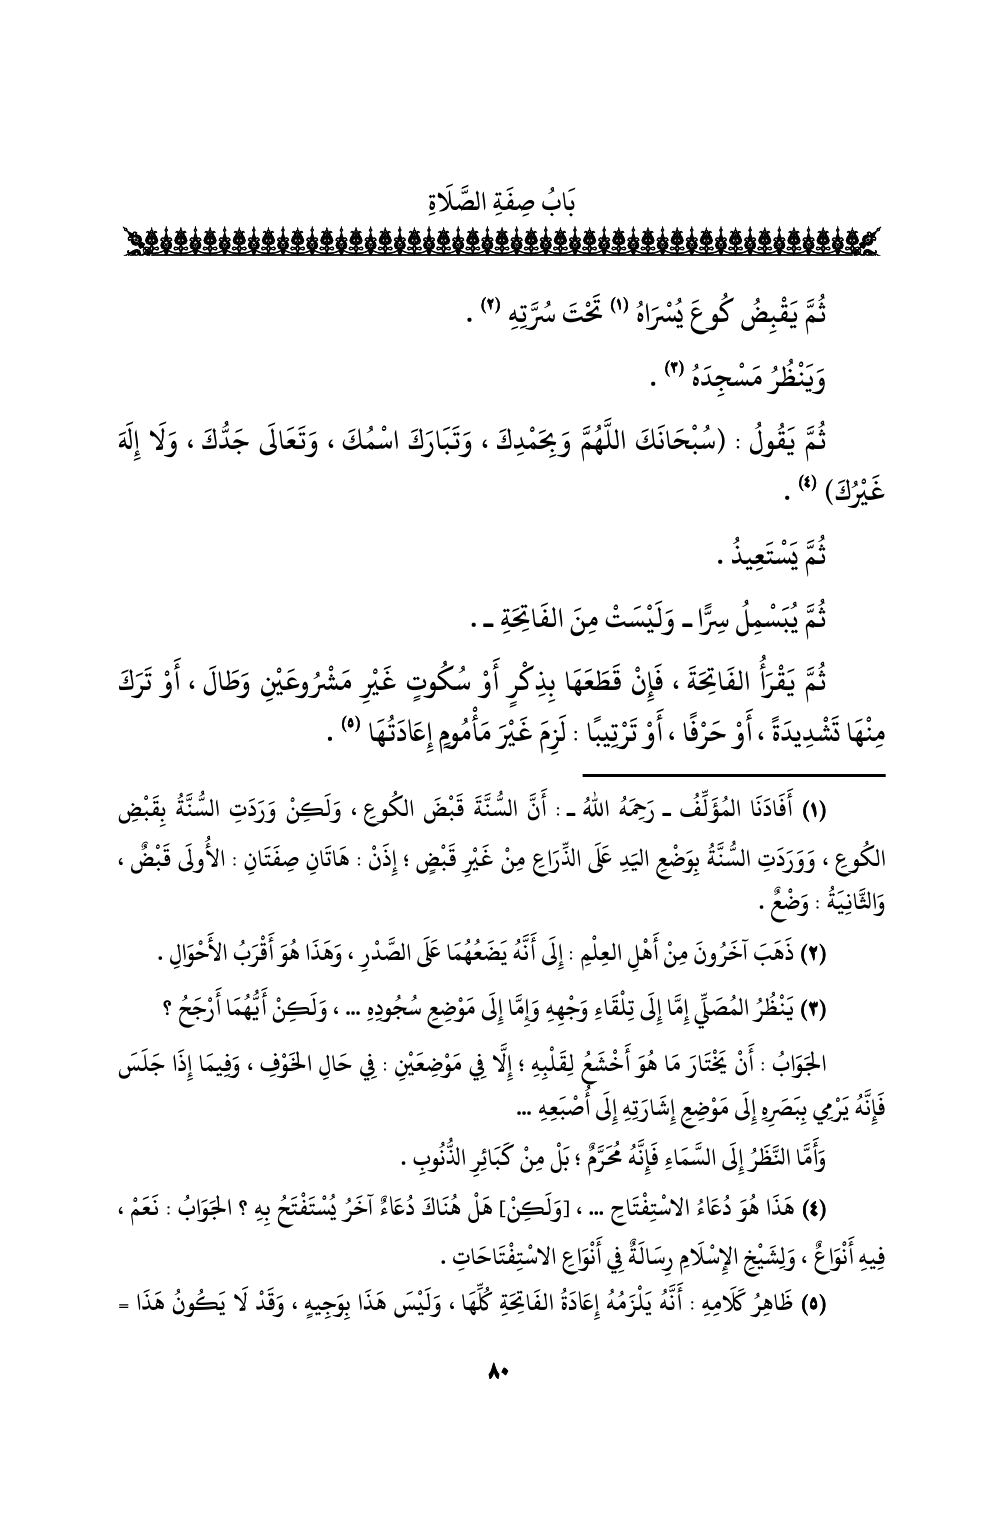 بَابُ صِفَةِ الصَّلَاةِ
ثُمَّ يَقْبِضُ كُوعَ يُسْرَاهُ (١) تَحْتَ سُرَّتِهِ (٢) .
وَيَنْظُرُ مَسْجِدَهُ (٣) .
ثُمَّ يَقُولُ : (سُبْحَانَكَ اللَّهُمَّ وَبِحَمْدِكَ ، وَتَبَارَكَ اسْمُكَ ، وَتَعَالَى جَدُّكَ ، وَلَا إِلَهَ
غَيْرُكَ) (٤) .
ثُمَّ يَسْتَعِيذُ .
ثُمَّ يُبَسْمِلُ سِرًّا ـ وَلَيْسَتْ مِنَ الفَاتِحَةِ ـ .
ثُمَّ يَقْرَأُ الفَاتِحَةَ ، فَإِنْ قَطَعَهَا بِذِكْرٍ أَوْ سُكُوتٍ غَيْرِ مَشْرُوعَيْنِ وَطَالَ ، أَوْ تَرَكَ
مِنْهَا تَشْدِيدَةً ، أَوْ حَرْفًا ، أَوْ تَرْتِيبًا : لَزِمَ غَيْرَ مَأْمُومٍ إِعَادَتُهَا (٥) .
(١) أَفَادَنَا المُؤَلِّفُ ـ رَحِمَهُ اللهُ ـ : أَنَّ السُّنَّةَ قَبْضَ الكُوعِ ، وَلَكِنْ وَرَدَتِ السُّنَّةُ بِقَبْضِ
الكُوعِ ، وَوَرَدَتِ السُّنَّةُ بِوَضْعِ اليَدِ عَلَى الذِّرَاعِ مِنْ غَيْرِ قَبْضٍ ؛ إِذَنْ : هَاتَانِ صِفَتَانِ : الأُولَى قَبْضٌ ،
وَالثَّانِيَةُ : وَضْعٌ .
(٢) ذَهَبَ آخَرُونَ مِنْ أَهْلِ العِلْمِ : إِلَى أَنَّهُ يَضَعُهُمَا عَلَى الصَّدْرِ ، وَهَذَا هُوَ أَقْرَبُ الأَحْوَالِ .
(٣) يَنْظُرُ المُصَلِّي إِمَّا إِلَى تِلْقَاءِ وَجْهِهِ وَإِمَّا إِلَى مَوْضِعِ سُجُودِهِ ... ، وَلَكِنْ أَيُّهُمَا أَرْجَحُ ؟
الجَوَابُ : أَنْ يَخْتَارَ مَا هُوَ أَخْشَعُ لِقَلْبِهِ ؛ إِلَّا فِي مَوْضِعَيْنِ : فِي حَالِ الخَوْفِ ، وَفِيمَا إِذَا جَلَسَ
فَإِنَّهُ يَرْمِي بِبَصَرِهِ إِلَى مَوْضِعِ إِشَارَتِهِ إِلَى أُصْبَعِهِ ...
وَأَمَّا النَّظَرُ إِلَى السَّمَاءِ فَإِنَّهُ مُحَرَّمٌ ؛ بَلْ مِنْ كَبَائِرِ الذُّنُوبِ .
(٤) هَذَا هُوَ دُعَاءُ الاسْتِفْتَاحِ ... ، [وَلَكِنْ] هَلْ هُنَاكَ دُعَاءٌ آخَرُ يُسْتَفْتَحُ بِهِ ؟ الجَوَابُ : نَعَمْ ،
فِيهِ أَنْوَاعٌ ، وَلِشَيْخِ الإِسْلَامِ رِسَالَةٌ فِي أَنْوَاعِ الاسْتِفْتَاحَاتِ .
(٥) ظَاهِرُ كَلَامِهِ : أَنَّهُ يَلْزَمُهُ إِعَادَةُ الفَاتِحَةِ كُلِّهَا ، وَلَيْسَ هَذَا بِوَجِيهٍ ، وَقَدْ لَا يَكُونُ هَذَا =
٨٠